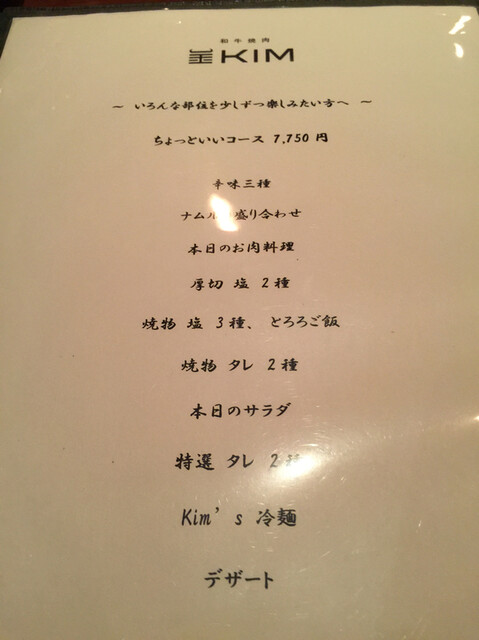 和牛焼肉
KIM
～ いろんな部位を少しずつ楽しみたい方へ ～
ちょっといいコース 7,750 円
辛味三種
ナムル 盛り合わせ
本日のお肉料理
厚切 塩 2 種
焼物 塩 3 種、 とろろご飯
焼物 タレ 2 種
本日のサラダ
特選 タレ 2 種
Kim's 冷麺
デザート